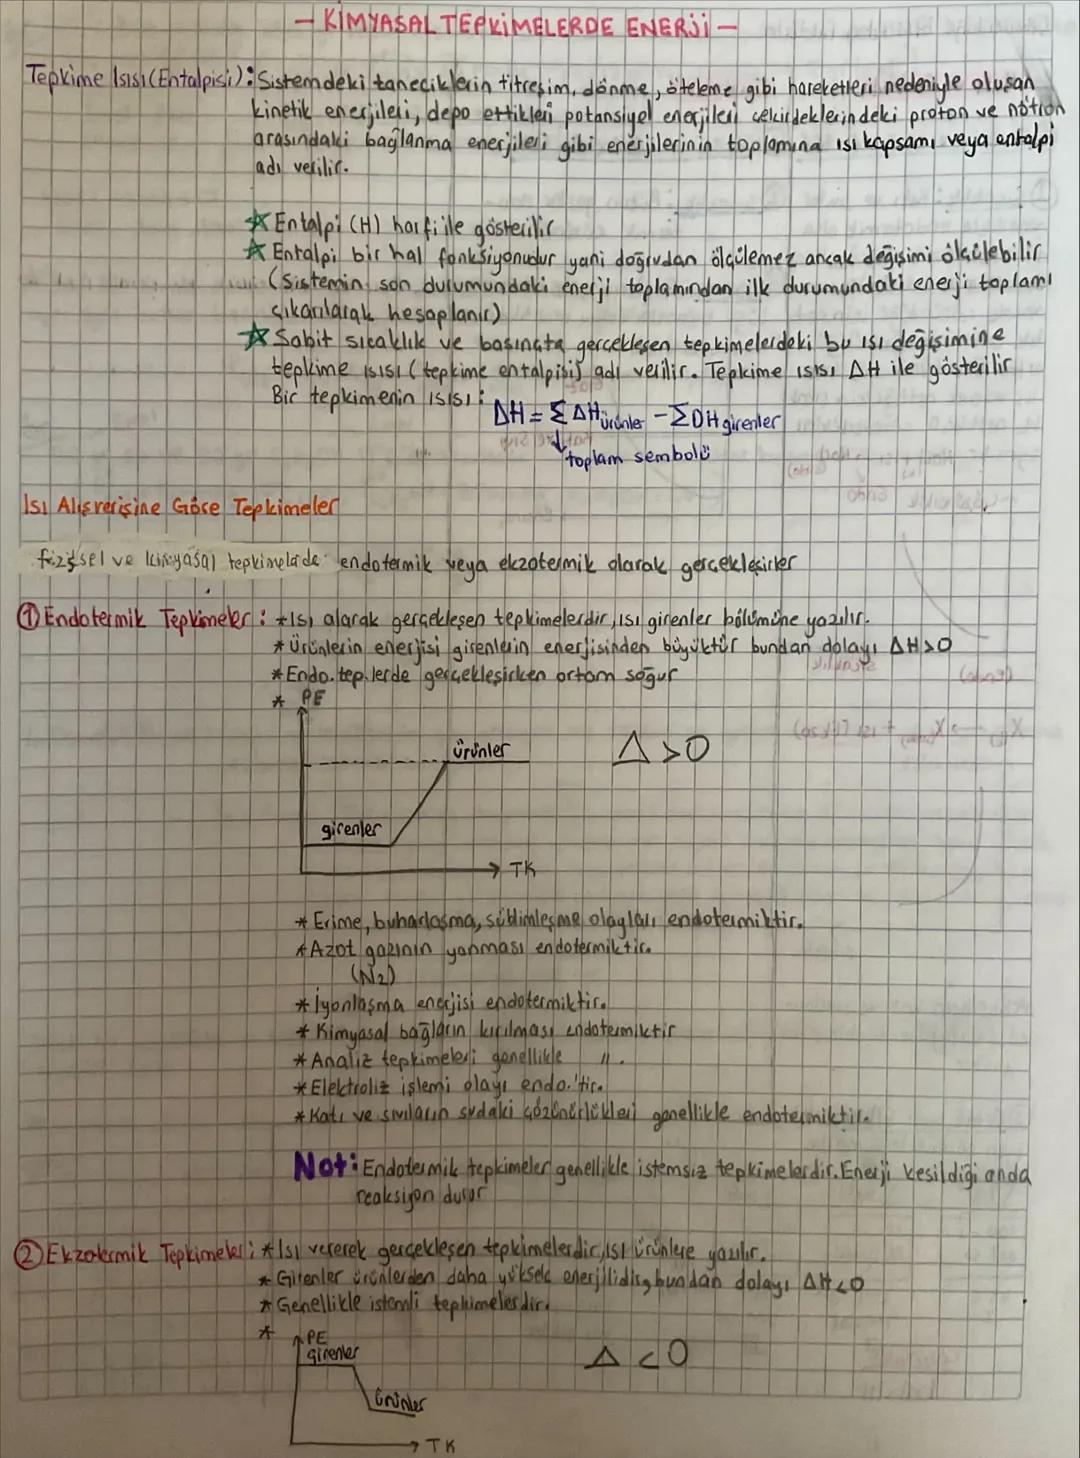 - KİMYASAL TEPKİMELERDE ENERJİ -
Tepkime Isısı (Entalpisi): Sistemdeki taneciklerin titreşim, dönme, öteleme gibi hareketleri nedeniyle oluşan
kinetik enerjileri, depo ettikleri potansiyel enerjileri çekirdeklerindeki proton ve nötron
arasındaki bağlanma enerjileri gibi enerjilerinin toplamına ısı kapsamı veya entalpi
adı verilir.
☆ Entalpi (H) harfi ile gösterilir
☆ Entalpi bir hal fonksiyonudur yani doğrudan ölçülemez ancak değişimi ölçülebilir
(Sistemin son durumundaki enerji toplamından ilk durumundaki enerji toplamı
çıkarılarak hesaplanır)
☆ Sabit sıcaklık ve basınçta gerçekleşen tepkimelerdeki bu ısı değişimine
tepkime ısısı (tepkime entalpisi) adı verilir. Tepkime ısısı ΔH ile gösterilir
Bir tepkimenin ısısı:
ΔH = Σ ΔHürünler - ΣDHgirenler
↓
toplam sembolü
Isı Alışverişine Göre Tepkimeler
fiziksel ve kimyasal tepkimelerde endotermik veya ekzotermik olarak gerçekleşirler
① Endotermik Tepkimeler: *Isı alarak gerçekleşen tepkimelerdir, ısı girenler bölümüne yazılır.
* Ürünlerin enerjisi girenlerin enerjisinden büyüktür bundan dolayı ΔH>0
* Endo. tep.lerde gerçekleşirken ortam soğur
* PE
ürünler
Δ > 0
girenler
→ TK
* Erime, buharlaşma, süblimleşme olayları endotermiktir.
* Azot gazının yanması endotermiktir.
(N2)
* İyonlaşma enerjisi endotermiktir.
* Kimyasal bağların kırılması endotermiktir
* Analiz tepkimeleri genellikle ".
* Elektroliz işlemi olayı endo.'tir.
* Katı ve sıvıların sudaki çözünürlükleri genellikle endotermiktir.
Not: Endotermik tepkimeler genellikle istemsiz tepkimelerdir. Enerji kesildiği anda
reaksiyon durur
② Ekzotermik Tepkimeler: * Isı vererek gerçekleşen tepkimelerdir, ısı ürünlere yazılır.
* Girenler ürünlerden daha yüksek enerjilidir, bundan dolayı ΔH<0
* Genellikle istemli tepkimelerdir.
* PE
girenler
Δ < 0
ürünler
→ TK